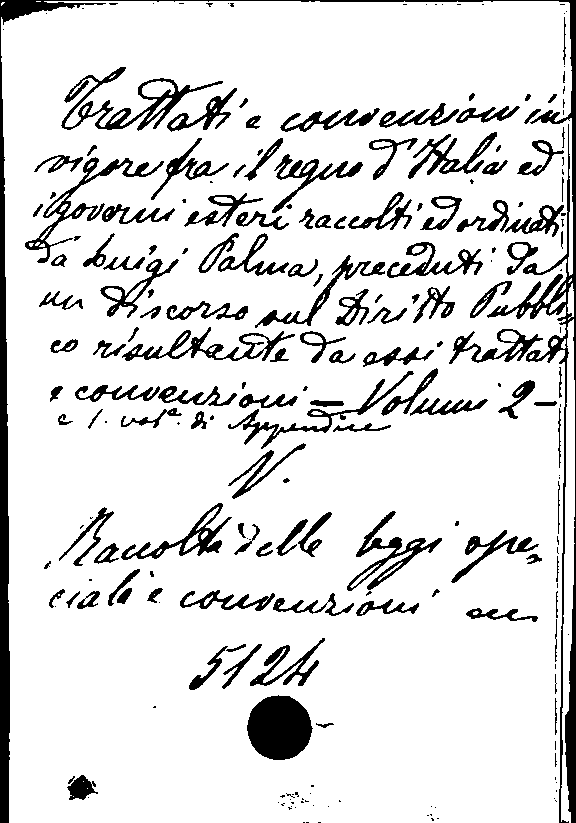 Trattati e convenzioni in
vigore fra il regno d'Italia ed
i governi esteri raccolti ed ordinati
da Luigi Palma, preceduti da
un discorso sul Diritto Pubbli-
co risultante da essi trattati
e convenzioni — Volumi 2 —
e 1. vol. di Appendice
V.
Raccolta delle leggi spe-
ciali e convenzioni
5124